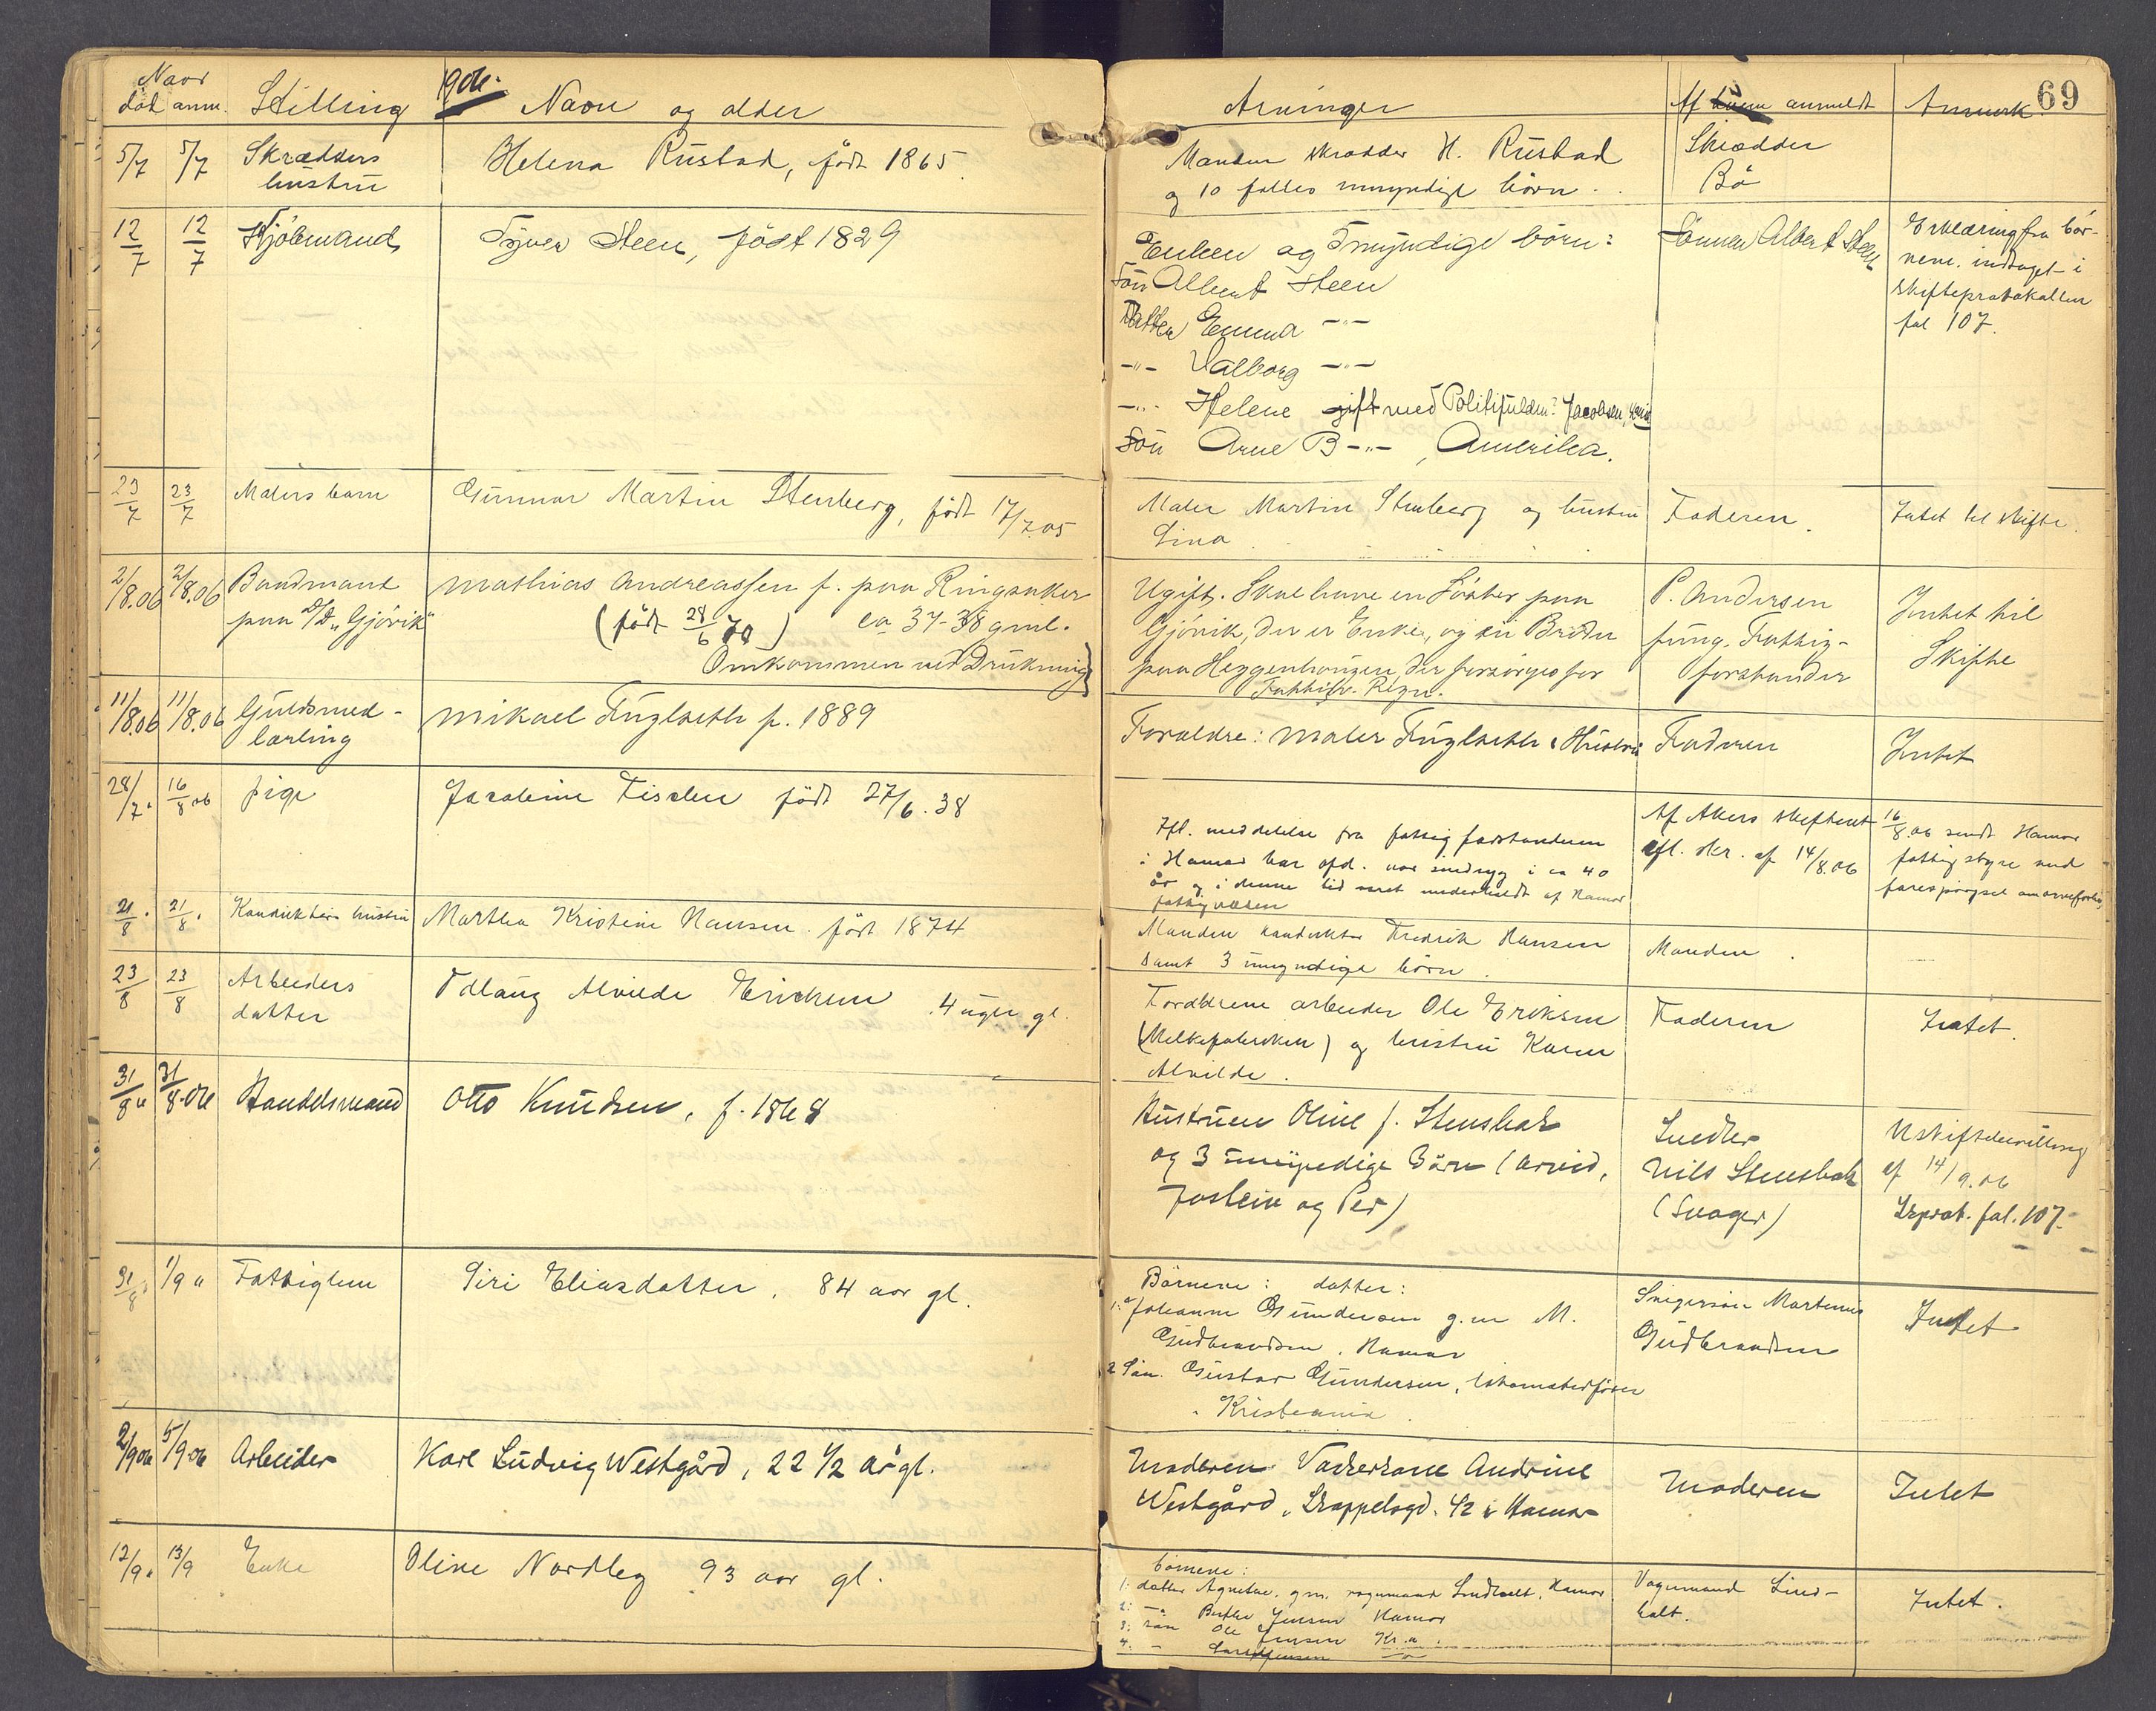 Naar
död anm. Stilling 1906. Navn og alder Arvinger Af hvem anmeldt Anmerk. 69
5/7 5/7 Skrædders hustru
Helena Rustad, födt 1865.
Manden skrædder H. Rustad
og 10 fælles umyndige börn.
Skrædder
Bö
12/7 12/7 Kjöbmand
Syver Steen, födt 1829
Enken og myndige börn:
Sön Albert Steen
Datter Emma -"-
-"- Valborg -"-
-"- Helene gift med Politifuldm. Jacobsen,
Sön Arne B -"-, Amerika.
Sönnen Albert Steen
Erklæring fra bör-
nene indtaget i
skifteprotokollen
fol 107.
23/7 23/7 Malers barn
Gunnar Martin Stenberg, födt 17/7.05
Maler Martin Stenberg og hustru
Lina
Faderen.
Intet til skifte.
2/8.06 2/8.06 Baadmand
paa D/S "Gjövik"
Mathias Andreassen f. paa Ringsaker
(födt 28/6 70) ca 37-38 gml.
Omkommen ved Drukning
Ugift. Skal have en Söster paa
Gjövik, der er Enke, og en Broder
paa Heggenhougen, der forsörges for
Fattigv. Regn.
P. Andersen
fung. Fattig-
forstander
Intet til
Skifte
11/8.06 11/8.06 Guldsmed-
lærling
Mikael Fuglseth f. 1889
Forældre: Maler Fuglseth & Hustru
Faderen
Intet
28/7. 16/8.06 pige
Jacobine Fischer födt 27/6.38
Ifl. meddelelse fra fattigforstanderen
i Hamar har afd. vær sindsyg i ca 40
år og i denne tid været underholdt af Hamar
fattigvæsen
Af Akers skifteret
ifl. skr. af 14/8.06
16/8.06 sendt Hamar
fattigstyre med
forespörgsel om arveforh.
21/8. 21/8. Konduktörs hustru
Martha Kristine Hansen. födt 1874
Manden konduktör Fredrik Hansen
samt 3 umyndige börn.
Manden.
23/8 23/8 Arbeiders
datter
Odlaug Alvilde Eriksen. 4 uger gl.
Forældrene arbeider Ole Eriksen
(Melkefabriken) og hustru Karen
Alvilde.
Faderen
Intet.
31/8 " 31/8.06 Handelsmand
Otto Knudsen, f. 1868
Hustruen Oline f. Stensbak
og 3 umyndige Börn (Arvid,
Jostein og Per)
Snedker
Nils Stensbak
(Svoger)
Uskiftebevilling
af 14/9.06
Skprot. fol. 107.
31/8 1/9 " Fattiglem
Siri Eliasdatter, 84 aar gl.
Börnene: datter:
1: Johanne Gundersen g.m M.
Gudbrandsen, Hamar
2 Sön. Gustav Gundersen, lokomotivförer
Kristiania.
Svigersön Martinus
Gudbrandsen
Intet
2/9 06 5/9 06 Arbeider
Karl Ludvig Westgård, 22 1/2 år gl.
Moderen Vaskekone Andrine
Westgård, Grappelsgd. 42 i Hamar
Moderen
Intet
12/9. 13/9 Enke
Oline Nordleg 93 aar gl.
börnene:
1: datter Agnethe, g.m. vognmand Lindholt, Hamar
2: -"- Berthe Jensen Hamar
3: sön Ole Jensen Kr.a.
4: - Jensen -"-
Vognmand Lind-
holt.
Intet.